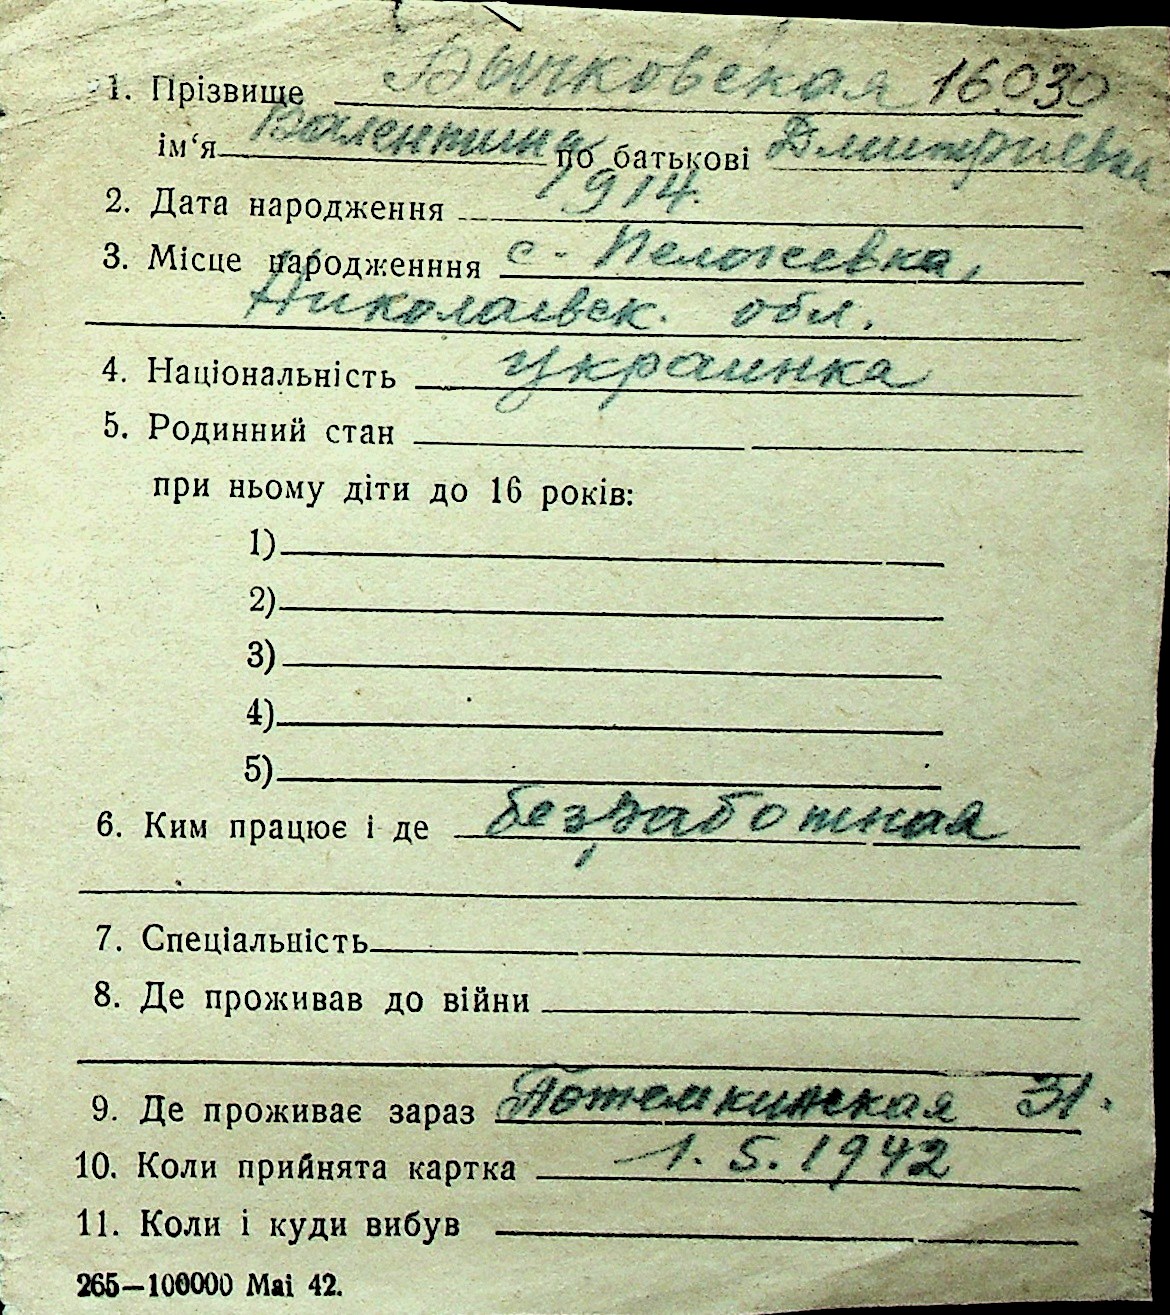 1. Прізвище Бычковская 16030
ім‘я Валентина по батькові Дмитриевна
2. Дата народження 1914.
3. Місце народженння с.
Николаевск. обл.
4. Національність украинка
5. Родинний стан
при ньому діти до 16 років:
1)
2)
3)
4)
5)
6. Ким працює і де безработная
7. Спеціальність
8. Де проживав до війни
9. Де проживає зараз Потемкинская 31.
10. Коли прийнята картка 1. 5. 1942
11. Коли і куди вибув
265—100000 Mai 42.